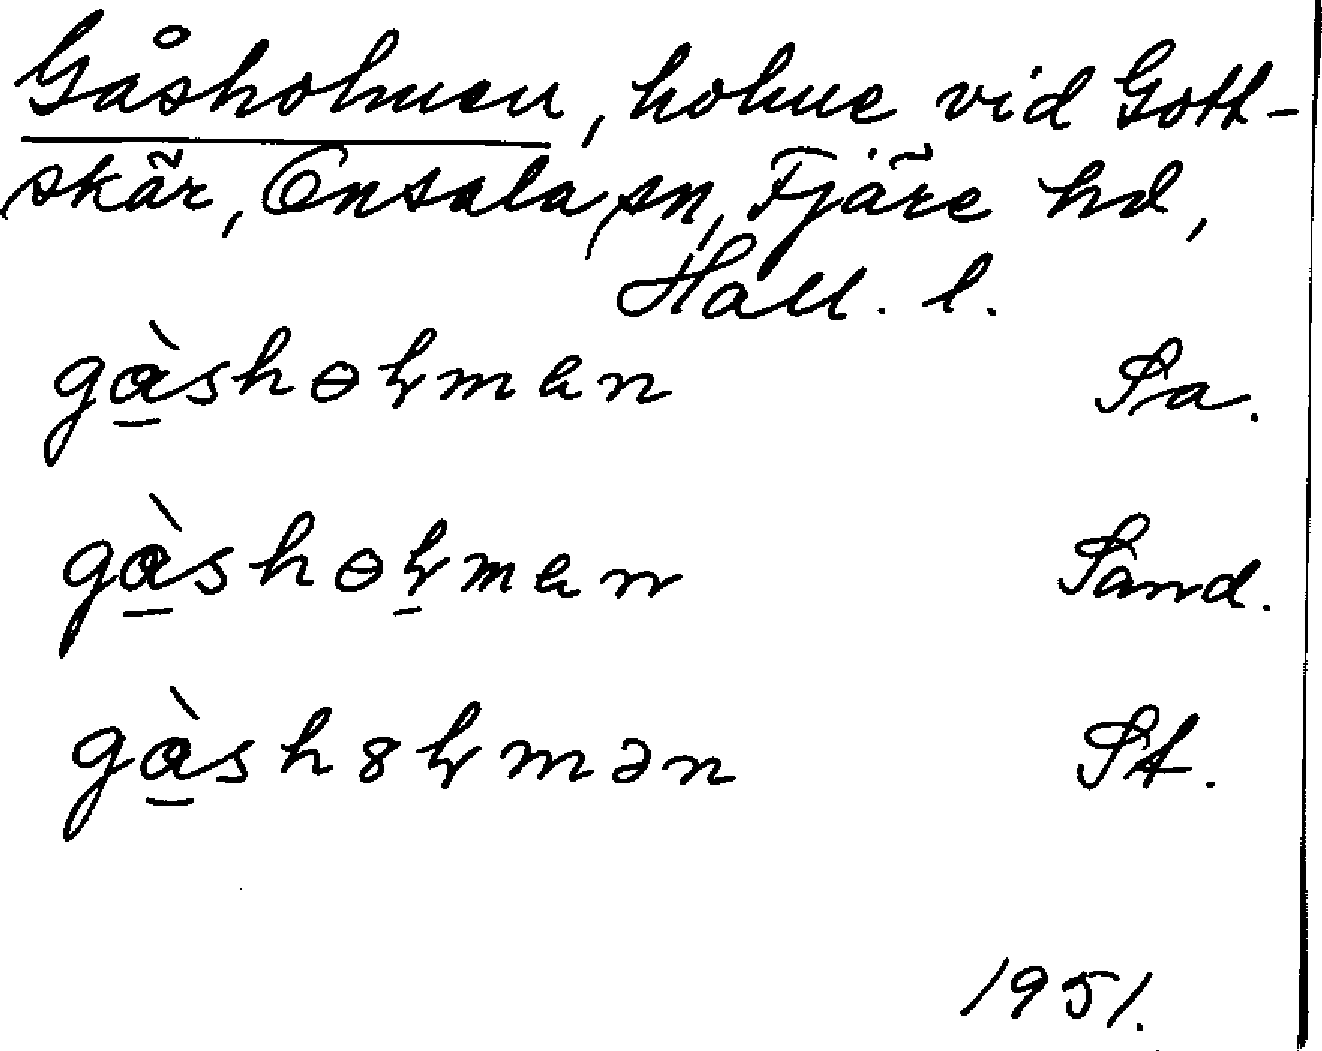 Gåsholmen, holme vid Gott-
skär, Onsala sn, Fjäre hd,
Hall. l.
gὰ̲shɵɫmen Sa.
gὰ̲shɵɫ̲men Sand.
gὰ̲sh8ɫmən St.
1951.